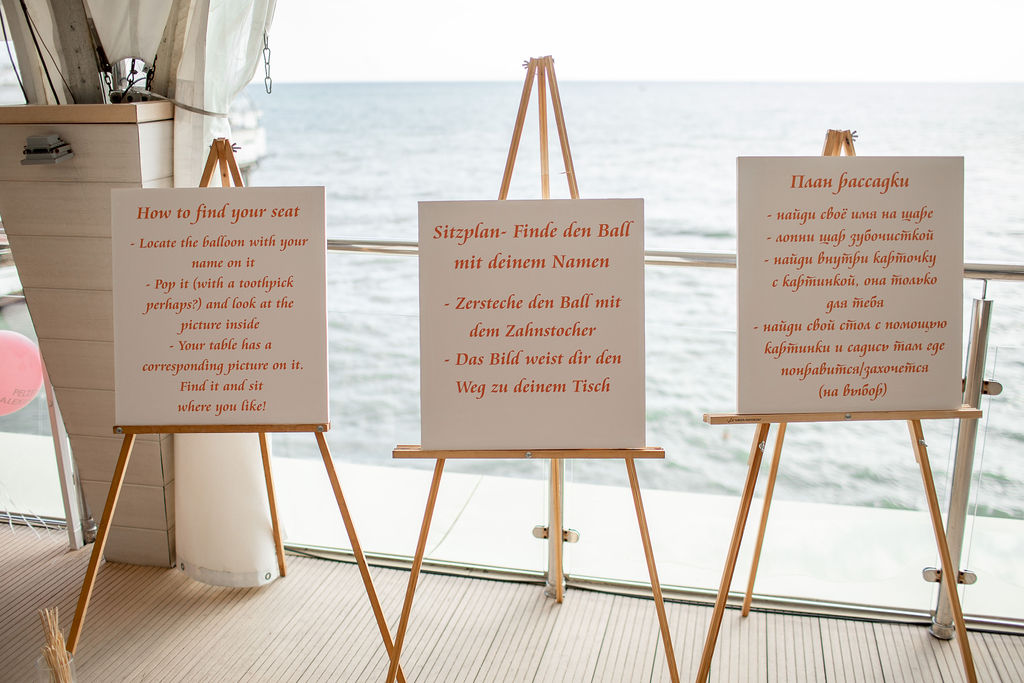 How to find your seat
- Locate the balloon with your
name on it
- Pop it (with a toothpick
perhaps?) and look at the
picture inside
- Your table has a
corresponding picture on it.
Find it and sit
where you like!
Sitzplan- Finde den Ball
mit deinem Namen
- Zersteche den Ball mit
dem Zahnstocher
- Das Bild weist dir den
Weg zu deinem Tisch
План рассадки
- найди своё имя на шаре
- лопни шар зубочисткой
- найди внутри карточку
с картинкой, она только
для тебя
- найди свой стол с помощью
картинки и садись там где
понравится/захочется
(на выбор)